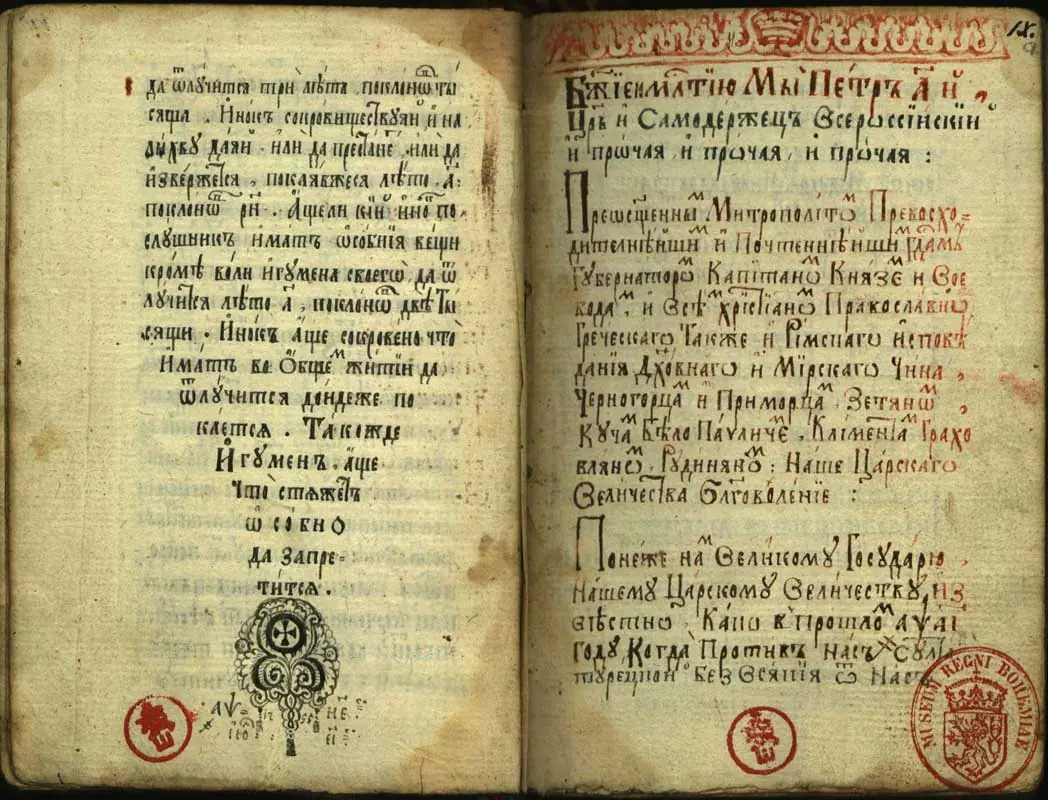 да ѿлꙋчитсѧ три лѣта поклонѡⷡ҇ ты
сѧща . Инокъ сокровиществꙋѧй и на
лихвꙋ даѧй . или да престане, или да
извержетсѧ
поклонѡⷡ҇ рн҃ . Ащели кїй ино
слꙋшникъ иматъ ѡсобнїѧ вещи
кромѣ воли игꙋмена своегѡ, да ѿ
лꙋчитсѧ лѣто а҃, поклонѡⷡ҇ двѣ ты
сѧщи . Инокъ аще сокровено что
имать во общеⷨ житїи да
ѿлꙋчитсѧ дондеже по
каетсѧ . Такожде
Игꙋменъ . аще
что стѧжетъ
ѡсобно
да запре-
титсѧ .
Бж҃їею мл҃тїю Мы Петръ А҃ й ,
Цр҃ь и Самодержецъ Всероссїйскїй
и прѡчаѧ, и прѡчаѧ, и прѡчаѧ :
Преѡсщ҃енныⷨ Митрополитѡⷨ Превосхо-
дителнѣйшиⷨ и Почтеннѣйшиⷨ Гд҃амъ
Гꙋбернаторѡⷨ Капїтанѡⷨ Кнѧзеⷨ и Вое
водаⷨ, и всѣⷨ хрїстїанѡⷨ Православнѡ
Греческагѡ Также и Рїмскагѡ исповѣ
данїѧ Дх҃овнагѡ и Мїрскагѡ Чина ,
Черногорцаⷨ и Приморцаⷨ Зетѧнѡⷨ ,
Кꙋчаⷨ Бѣло Паѵличеⷨ, Клїментаⷨ Грахо
влѧнѡⷨ, Рꙋдинѧнѡⷨ : Наше Царскагѡ
Величества благоволенїе :
Понеже наⷨ Великомꙋ Госꙋдарю
Нашемꙋ Царскомꙋ Величествꙋ, из
вѣстно, Како в прошлоⷨ
годꙋ, Когда Противъ насъ Сꙋлт
тꙋрецкой без всѧкїѧ ѿ Насъ
MUSEUM REGNI BOHEMIAE